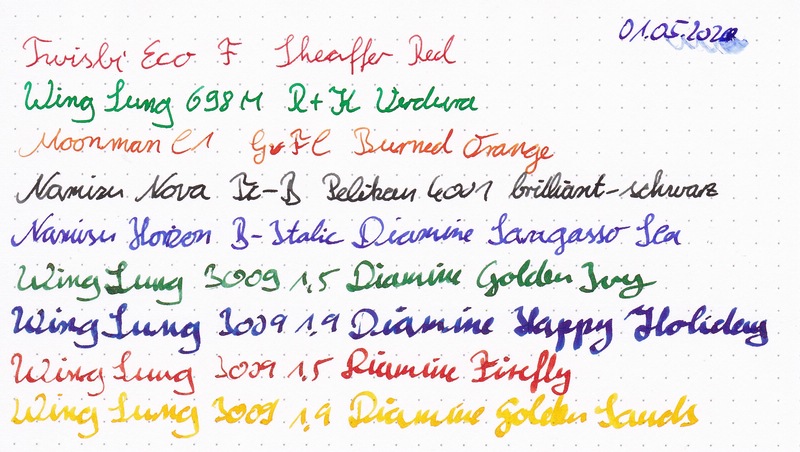 01.05.2020
Twisbi Eco F Sheaffer Red
Wing Sung 698 M R+K Verdura
Moonman C1 GvFC Burned Orange
Namisu Nova Ti-B Pelikan 4001 brilliant-schwarz
Namisu Horizon B-Italic Diamine Saragasso Sea
Wing Sung 3009 1,5 Diamine Golden Ivy
Wing Sung 3009 1,9 Diamine Happy Holiday
Wing Sung 3009 1,5 Diamine Firefly
Wing Sung 3009 1,9 Diamine Golden Sands